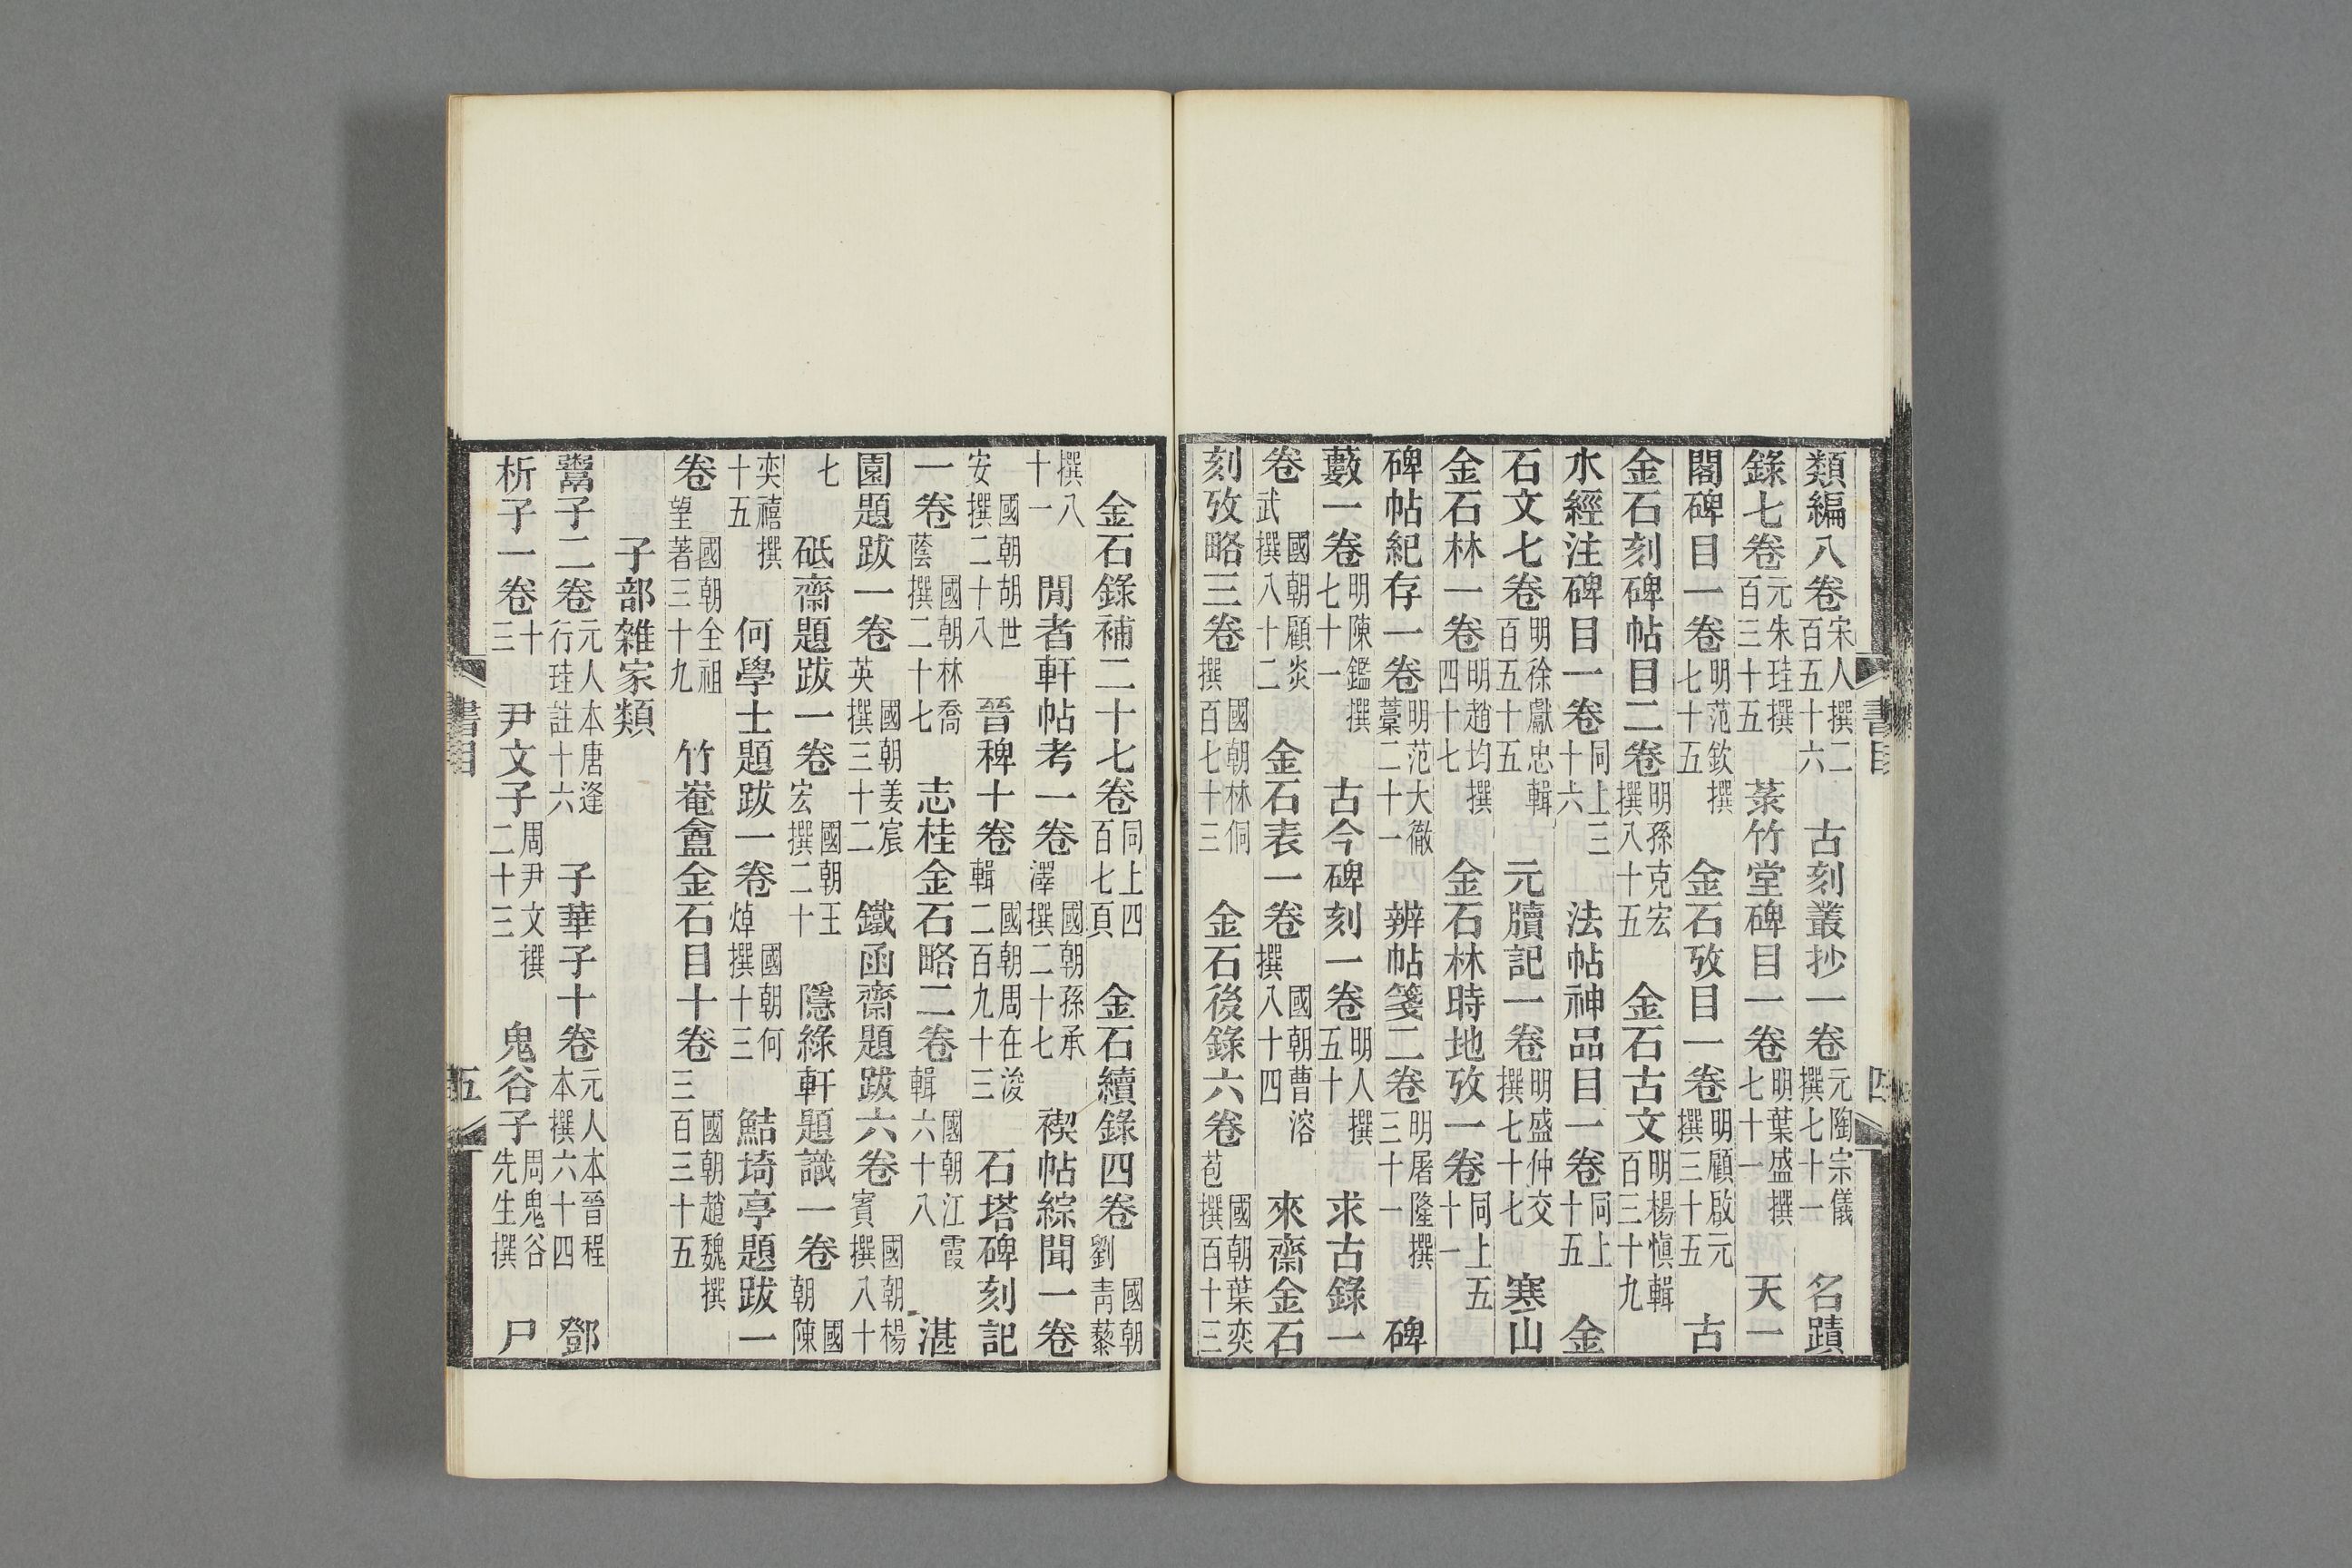 類編八卷宋人撰二百五十六　古刻叢抄一卷元陶宗儀撰七十一　名蹟
錄七卷元朱珪撰百三十五　菉竹堂碑目一卷明葉盛撰七十一　天一
閣碑目一卷明范欽撰七十五　金石攷目一卷明顧啟元撰三十五　古
金石刻碑帖目二卷明孫克宏撰八十五　金石古文明楊慎輯百三十九
水經注碑目一卷同上三十六　法帖神品目一卷同上十五　金
石文七卷明徐獻忠輯百五十五　元牘記一卷明盛仲交撰七十七　寒山
金石林一卷明趙均撰四十七　金石林時地攷一卷同上五十一
碑帖紀存一卷明范大徹藁二十一　辨帖箋二卷明屠隆撰三十一　碑
藪一卷明陳鑑撰七十一　古今碑刻一卷明人撰五十　求古錄一
卷國朝顧炎武撰八十二　金石表一卷國朝曹溶撰八十四　來齋金石
刻攷略三卷國朝林侗撰百七十三　金石後錄六卷國朝葉奕苞撰百十三
金石錄補二十七卷同上四百七頁　金石續錄四卷國朝劉青藜
撰八十一　閒者軒帖考一卷國朝孫承澤撰二十七　禊帖綜聞一卷
國朝胡世安撰二十八　晉稗十卷國朝周在浚輯二百九十三　石塔碑刻記
一卷國朝林喬蔭撰二十七　志桂金石略二卷國朝江霞輯六十八　湛
園題跋一卷國朝姜宸英撰三十二　鐵函齋題跋六卷國朝楊賓撰八十
七　砥齋題跋一卷國朝王宏撰二十　隱綠軒題識一卷國朝陳
奕禧撰十五　何學士題跋一卷國朝何焯撰十三　鮚埼亭題跋一
卷國朝全祖望著三十九　竹菴盦金石目十卷國朝趙魏撰三百三十五
子部雜家類
鬻子二卷元人本唐逢行珪註十六　子華子十卷元人本晉程本撰六十四　鄧
析子一卷十三　尹文子周尹文撰二十三　鬼谷子周鬼谷先生撰　尸
書目　四
書目　五